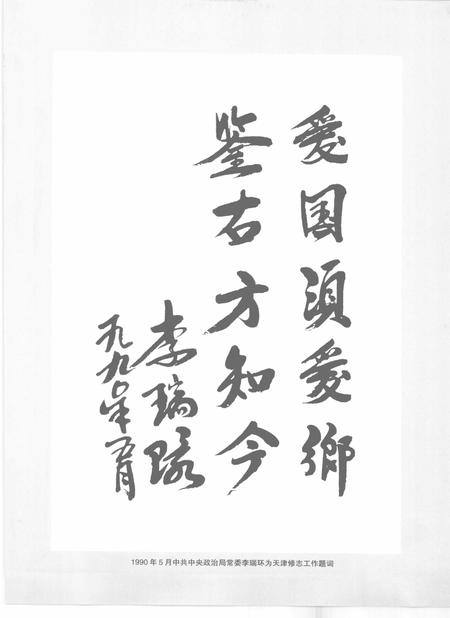 爱国须爱乡
鉴古方知今
李瑞环
一九九〇年五月
1990年5月中共中央政治局常委李瑞环为天津修志工作题词